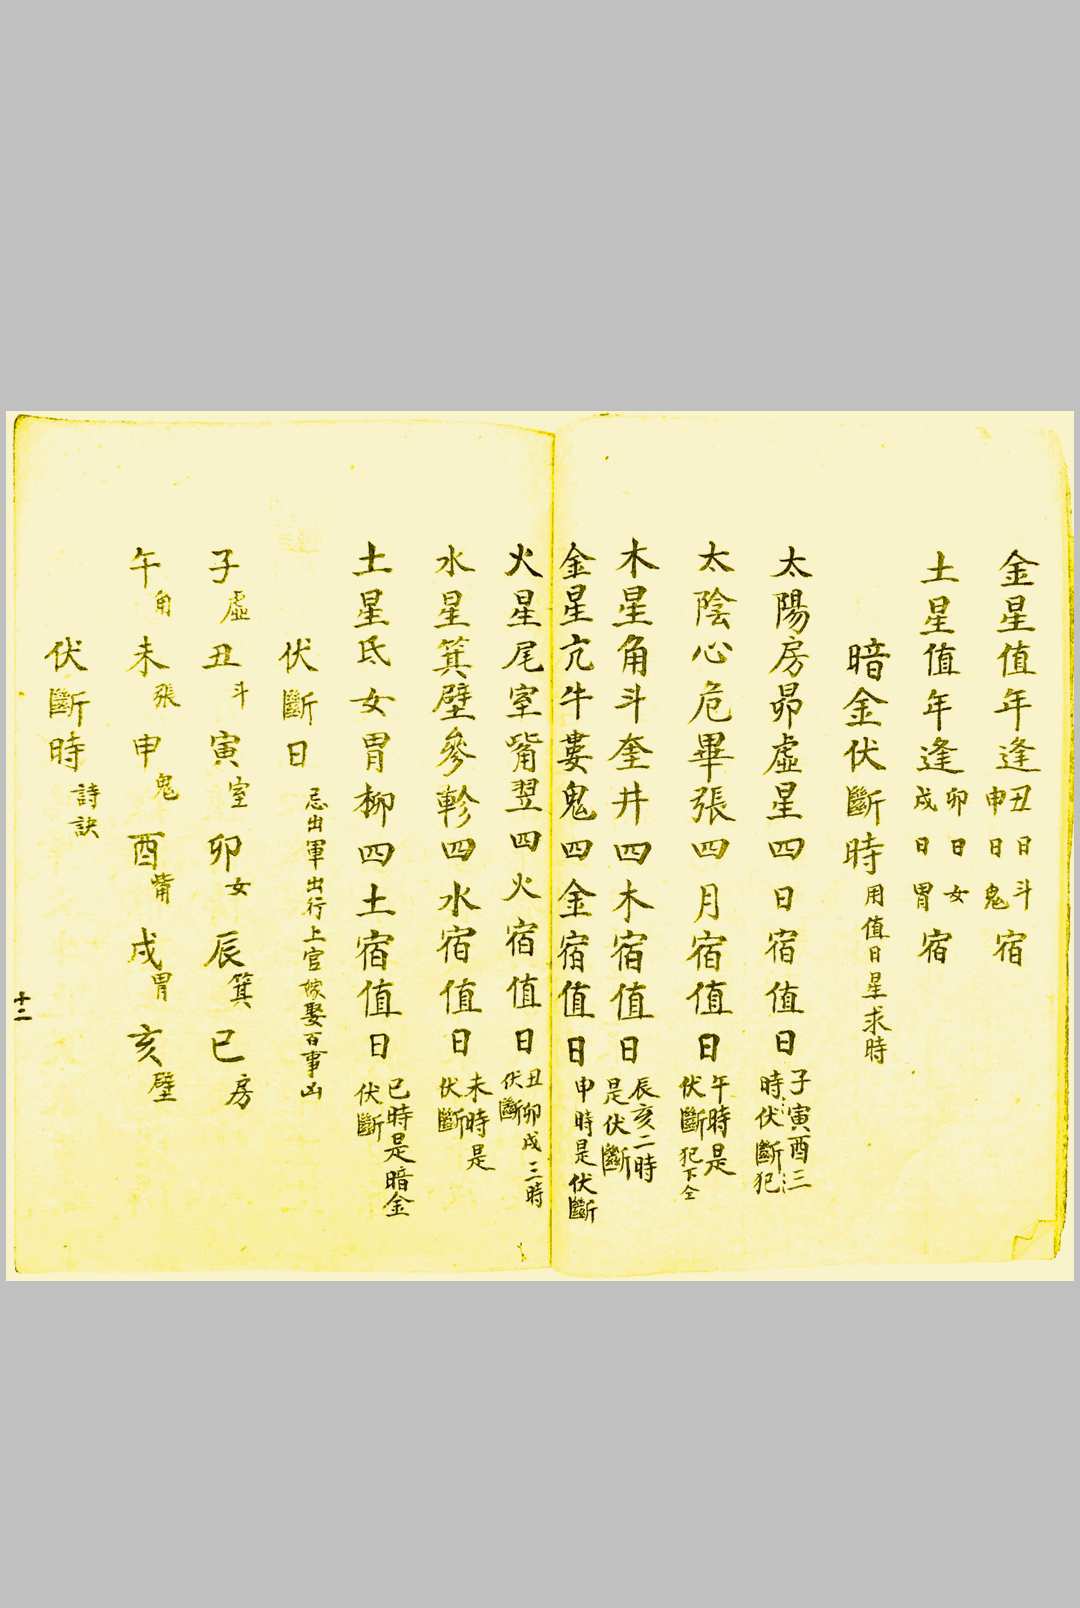 金星值年逢丑日斗申日鬼宿
土星值年逢卯日女戌日胃宿
暗金伏斷時用值日星求時
太陽房昴虛星四日宿值日子寅酉三時伏斷犯
太陰心危畢張四月宿值日午時是伏斷犯下仝
木星角斗奎井四木宿值日辰亥二時是伏斷
金星亢牛婁鬼四金宿值日申時是伏斷
火星尾室觜翌四火宿值日丑卯戌三時伏斷
水星箕壁參軫四水宿值日未時是伏斷
土星氐女胃柳四土宿值日巳時是暗金伏斷
伏斷日忌出軍出行上官嫁娶百事凶
子虛丑斗寅室卯女辰箕巳房
午角未張申鬼酉觜戌胃亥壁
伏斷時詩訣
十二